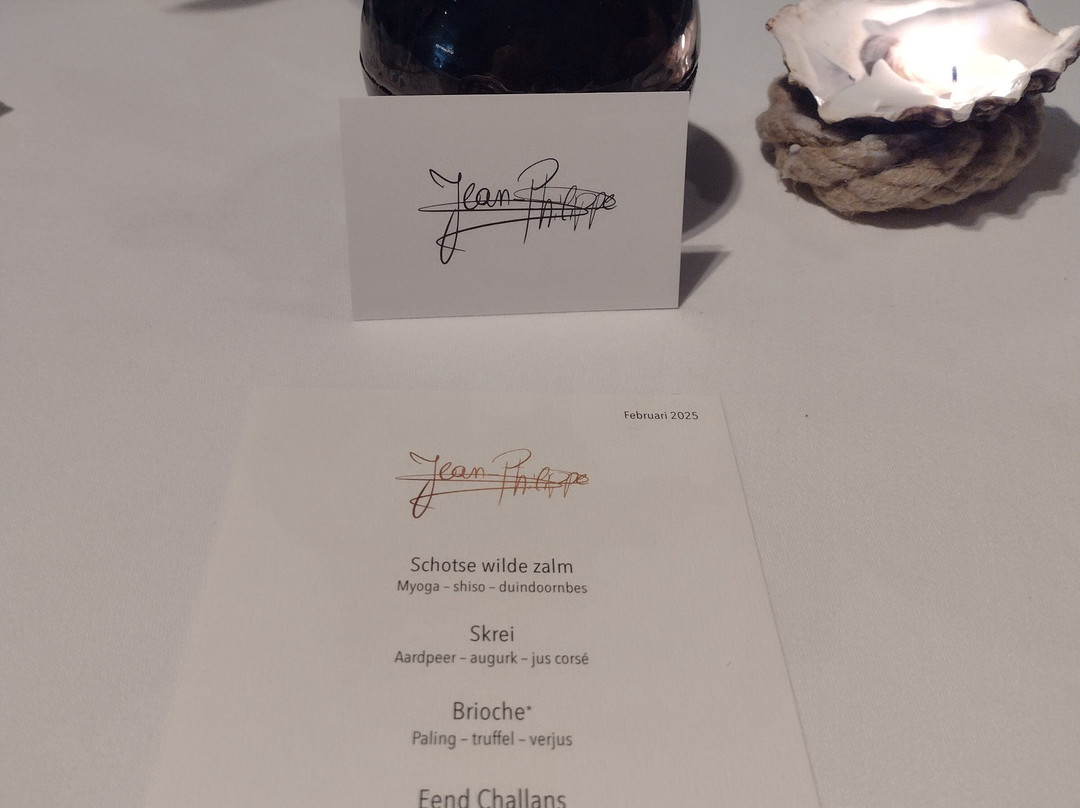 Jean Philippe
Februari 2025
Jean Philippe
Schotse wilde zalm
Myoga – shiso – duindoornbes
Skrei
Aardpeer – augurk – jus corsé
Brioche*
Paling – truffel – verjus
Eend Challans